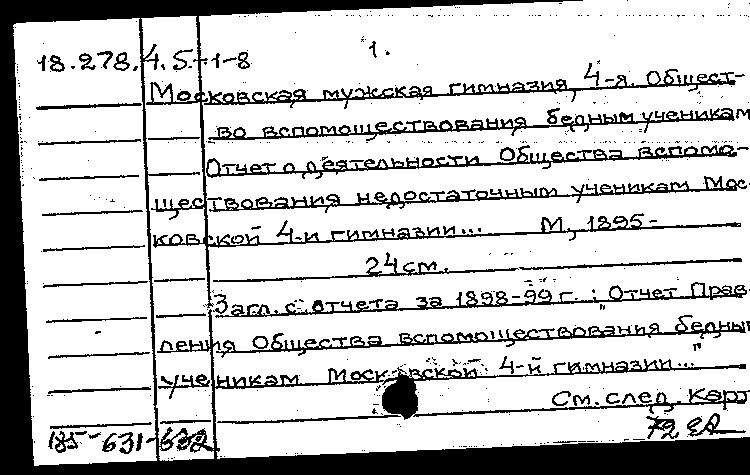 18.278.4.5.-1-8 1.
Московская мужская гимназия, 4-я. Общест-
во вспомоществования бедным ученикам
Отчет о деятельности Общества вспомо-
ществования недостаточным ученикам Мос-
ковской 4-и гимназии... М, 1895-
24см.
Загл. с отчета за 1898-99 г.: "Отчет Прав-
ления Общества вспомоществования бедным
ученикам Московской 4-й гимназии..."
См. след. карт
185-631-632